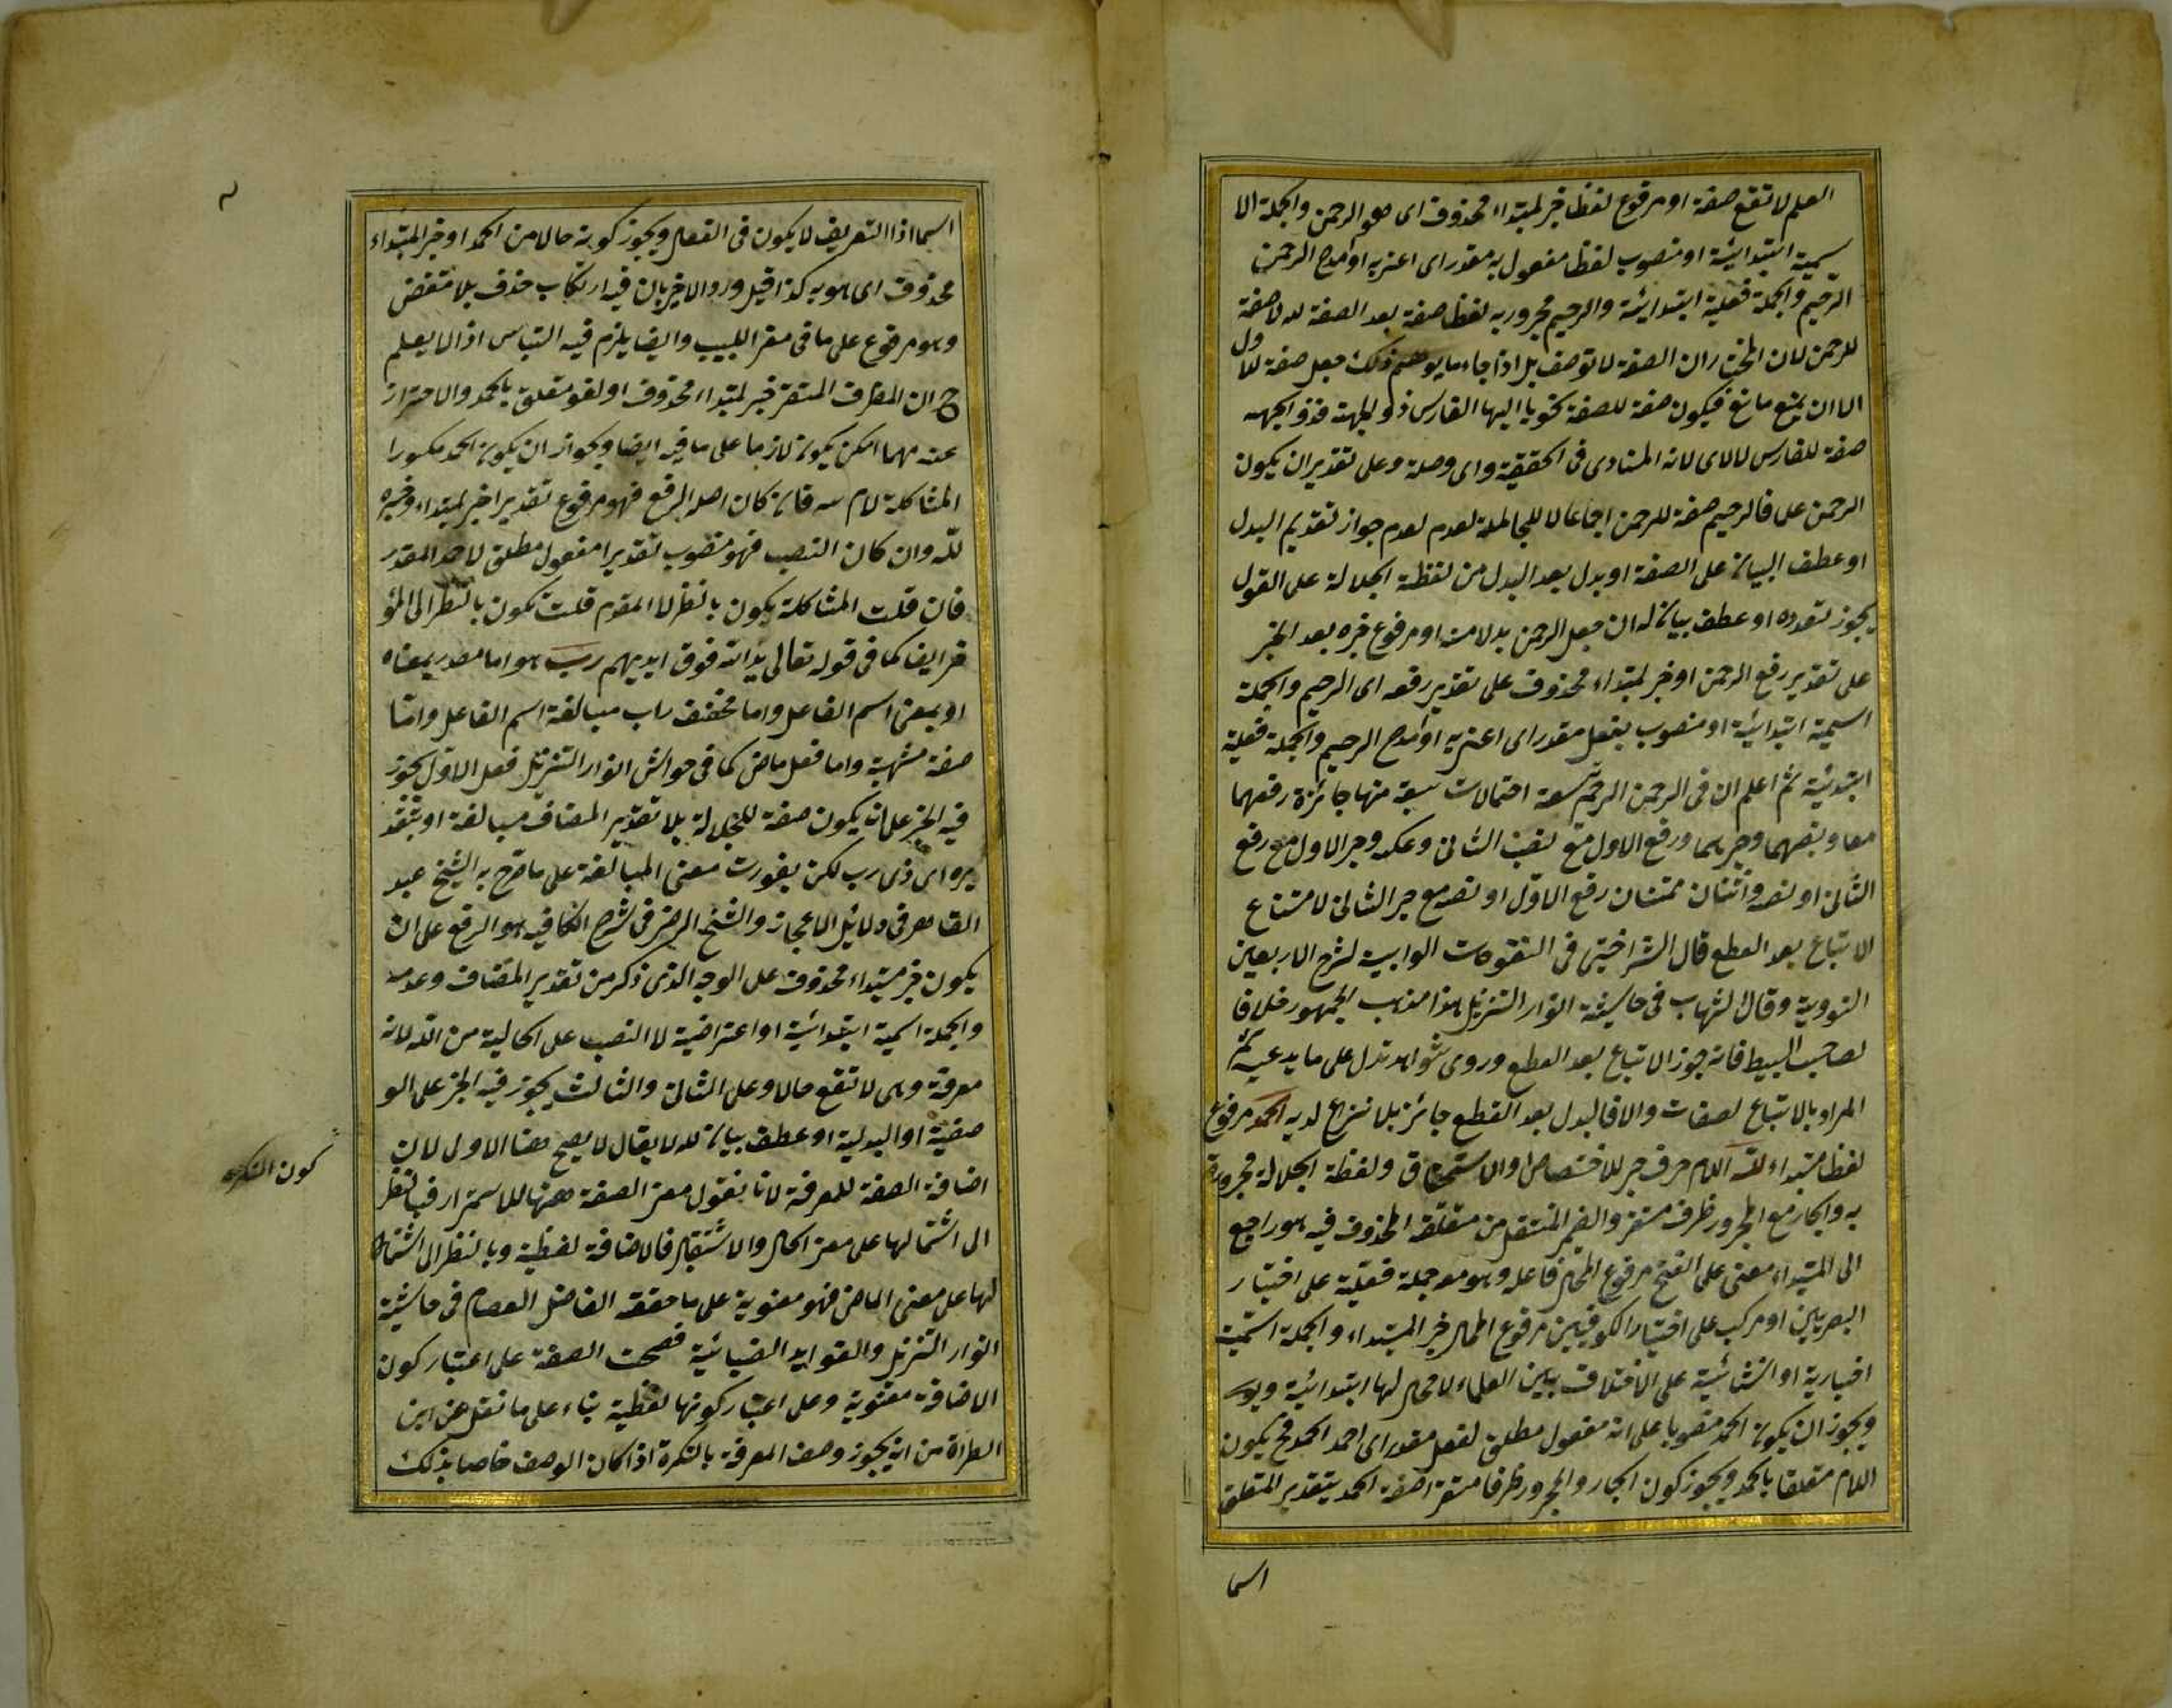 العلم لا تقع صفة او مرفوع لفظا خبر لمبتداء محذوف اى هو الرحمن والجملة الا
سمية ابتدائية او منصوب لفظا مفعول به مقدر اى اعنى به او امدح الرحمن
الرحيم والجملة فعلية ابتدائية والرحيم مجرور به لفظا صفة بعد الصفة لله لا صفة
للرحمن لان المختار ان الصفة لا توصف بل اذا جاء ما يوهم ذلك جعل صفة للاول
الا ان يمنع مانع فيكون صفة للصفة نحو يا ايها الفارس ذو الجهة فذو الجهه
صفة للفارس لا لاى لانه المنادى فى الحقيقة واى وصلة وعلى تقدير ان يكون
الرحمن علما فالرحيم صفة للرحمن اجماعا لا للجلالة لعدم جواز تقديم البدل
او عطف البيان على الصفة او بدل بعد البدل من لفظة الجلالة على القول
يجوز تعدده او عطف بيان له ان جعل الرحمن بدلا منه او مرفوع خبره بعد الخبر
على تقدير رفع الرحمن او خبر لمبتداء محذوف على تقدير رفعه اى الرحيم والجملة
اسمية ابتدائية او منصوب بفعل مقدر اى اعنى به او امدح الرحيم والجملة فعلية
ابتدئية ثم اعلم ان فى الرحمن الرحيم تسعة احتمالات سبعة منها جائزة رفعهما
معا ونصبهما وجرهما ورفع الاول مع نصب الثانى وعكسه وجر الاول مع رفع
الثانى او نصبه واثنان ممتنعان رفع الاول او نصبه مع جر الثانى لامتناع
الاتباع بعد القطع قال الشبراخيتى فى الفتوحات الوهبية لشرح الاربعين
النووية وقال الشهاب فى حاشية انوار التنزيل هذا مذهب الجمهور خلافا
لصاحب البسيط فانه جوز الاتباع بعد القطع وروى شواهد تدل على ما يدعيه ثم
المراد بالاتباع لصفات والا فالبدل بعد القطع جائز بلا نزاع لديه الحمد مرفوع
لفظا مبتداء لله اللام حرف جر للاختصاص والاستحقاق ولفظة الجلالة مجرورة
به والجار مع المجرور ظرف مستقر والضمير المنتقل من متعلقه المحذوف فيه هو راجع
الى المبتداء معنى على الفتح مرفوع المحل فاعله وهو معه جملة فعلية على اختيار
البصريين او مركب على اختيار الكوفيين مرفوع المحل خبر المبتداء والجملة اسمية
اخبارية او انشائية على الاختلاف بين العلماء لا محل لها ابتدائية
ويجوز ان يكون الحمد منصوبا على انه مفعول مطلق لفعل مقدر اى احمد الحمد فح يكون
اللام متعلقا بالحمد ويجوز كون الجار والمجرور ظرفا مستقرا صفة الحمد بتقدير المتعلق
اسما
اسما اذا التعريف لا يكون فى الفعل ويجوز كونه حالا من الحمد او خبر المبتداء
محذوف اى هو به كذا قيل ورد الاخير بان فيه ارتكاب حذف بلا مقتض
وهو مرفوع على ما فى مغن اللبيب وايضا يلزم فيه التباس اذ لا يعلم
ح ان الظرف المستقر خبر لمبتداء محذوف او لغو متعلق بالحمد والاحتراز
عنه مهما امكن يكون لازما على ما فيه ايضا ويجوز ان يكون الحمد مكسورا
المشاكلة لام لله فان كان اصله الرفع فهو مرفوع تقديرا خبر لمبتداء وخبره
لله وان كان النصب فهو منصوب تقديرا مفعول مطلق لاحمد المقدر
فان قلت المشاكلة يكون بالنظر الى المقدم قلت تكون بالنظر الى المؤ
خر ايضا كما فى قوله تعالى يد الله فوق ايديهم رب هو اما مصدر بمعناه
او بمعنى اسم الفاعل واما مخفف راب مبالغة اسم الفاعل واما
صفة مشبهة واما فعل ماض كما فى حواش انوار التنزيل فعلى الاول يجوز
فيه الجر على ان يكون صفة للجلالة بلا تقدير المضاف مبالغة او بتقد
يره اى ذى رب لكن يفوت معنى المبالغة على ما صرح به الشيخ عبد
القاهر فى دلائل الاعجاز والشيخ الرضى فى شرح الكافيه هو الرفع على ان
يكون خبر مبتداء محذوف على الوجه الذى ذكر من تقدير المضاف وعدمه
والجملة اسمية ابتدائية او اعتراضية لا النصب على الحالية من الله لانه
معرفة وهى لا تقع حالا وعلى الثانى والثالث يجوز فيه الجر على الو
صفية او البدلية او عطف بيان لله لا يقال لا يصح هنا الاولى لان
اضافة الصفة للمعرفة لانا نقول معنى الصفة ههنا للاستمرار فبالنظر
الى اشتمالها على معنى الحال والاستقبال فالاضافة لفظية وبالنظر الى اشتما
لها على معنى الماض فهو معنوية على ما حققه الفاضل العصام فى حاشية
انوار التنزيل والفوايد الضيائية فصحت الصفة على اعتبار كون
الاضافة معنوية وعلى اعتبار كونها لفظية بناء على ما نقل عن ابن
الطراة من انه يجوز وصف المعرفة بالنكرة اذا كان الوصف خاصا بذلك
كون النكره